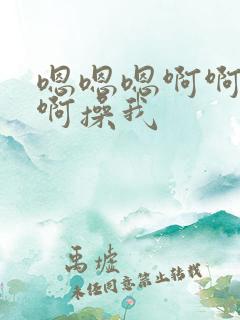 嗯嗯嗯啊啊
啊操我
禹墟
未经同意禁止转载